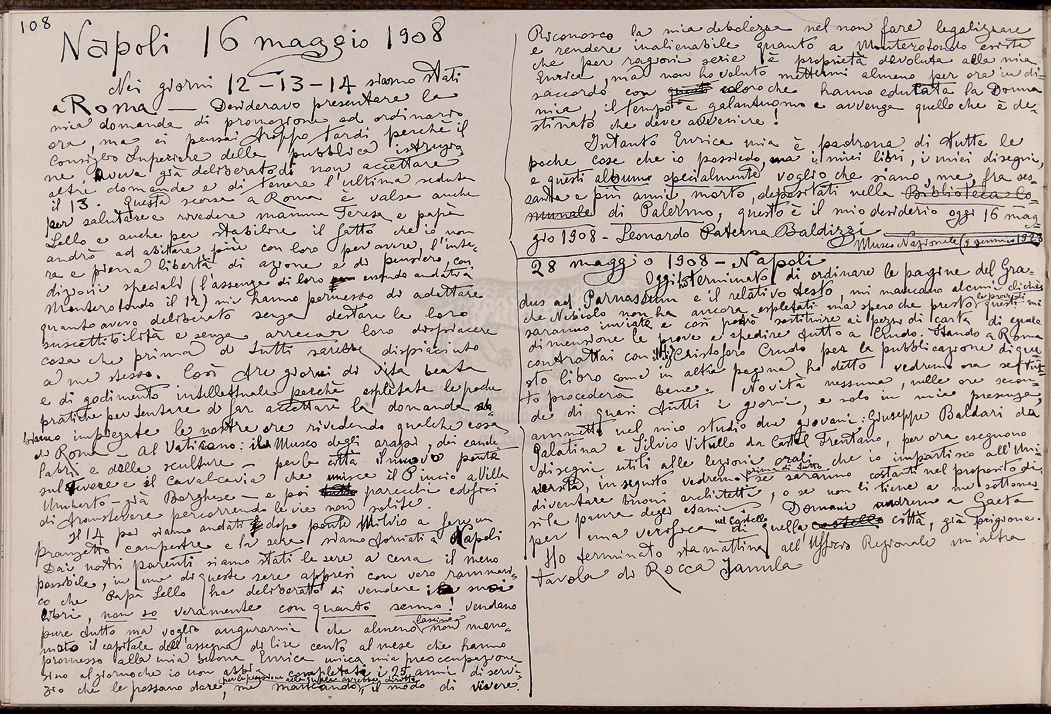 108
Napoli 16 maggio 1908
Nei giorni 12-13-14 siamo stati
a Roma — Desideravo presentare la
mia domanda di promozione ad ordinario
ora, ma ci pensai troppo tardi perchè il
Consiglio Superiore della pubblica istruzio-
ne, aveva già deliberato di non accettare
altre domande e di tenere l'ultima seduta
il 13. Questa scorsa a Roma è valsa anche
per salutare e rivedere mamma Teresa e papà
Lello e anche per stabilire il fatto che io non
andrò ad abitare più con loro per avere l'inte-
ra e piena libertà di azione e di pensiero, con-
dizioni speciali (l'assenza di loro essendo andati a
Monterotondo il 12) mi hanno permesso di adottare
quanto avevo deliberato senza destare la loro
suscettibilità e senza arrecar loro dispiacere
cosa che prima di tutti sarebbe dispiaciuto
a me stesso. Così tre giorni di vita beata
e di godimento intellettuale perchè espletate le poche
pratiche per tentare di far accettare la domanda ab-
biamo impiegate le nostre ore rivedendo qualche cosa
di Roma — Al Vaticano: il Museo degli arazzi, dei cande-
labri e delle sculture — per la città il nuovo ponte
sul Tevere e il Cavalcavia che unisce il Pincio a Villa
Umberto già Borghese — e poi parecchi edifizi
di Trastevere percorrendo le vie non solite.
Il 14 poi siamo andati dopo ponte Milvio a fare un
pranzetto campestre e la sera siamo tornati a Napoli
Dai nostri parenti siamo stati le sere a cena il meno
possibile, in una di queste sere appresi con vero rammari-
co che Papà Lello ha deliberato di vendere i suoi
libri, non so veramente con quanto senno! vendano
pure tutto ma voglio augurarmi che almeno lascino non meno-
mato il capitale dell'assegno di lire cento al mese che hanno
promesso alla mia buona Enrica unica mia preoccupazione
sino al giorno che io non abbia completato i 25 anni di servi-
zio che le possano dare, me mancando, il modo di vivere.
Riconosco la mia debolezza nel non fare legalizzare
e rendere inalienabile quanto a Monterotondo esiste
che per ragioni serie è proprietà devoluta alla mia
Enrica, ma non ho voluto mettermi almeno per ora in di-
saccordo con coloro che hanno educata la Donna
mia il tempo è galantuomo e avvenga quello che è de-
stinato che deve avvenire!
Intanto Enrica mia è padrona di tutte le
poche cose che io possiedo, ma i miei libri, i miei disegni,
e questi albums specialmente voglio che siano, me, fra ses-
santa e più anni, morto, depositati nella Biblioteca Co-
munale di Palermo, questo è il mio desiderio oggi 16 mag-
gio 1908 - Leonardo Paterna Baldizzi
Museo Nazionale (9 gennaio 1923
28 maggio 1908 — Napoli
Oggi terminato di ordinare le pagine del Gra-
dus ad Parnassum e il relativo testo mi mancano alcuni clichès
che Nebiolo non ha ancora espletati ma spero che presto questi mi
saranno inviati e così potrò sostituire ai pezzi di carta di eguale
dimensione le prove e spedire tutto a Crudo. Stando a Roma
contrattai con Cristoforo Crudo per la pubblicazione di que-
sto libro come in altra pagina ho detto vedremo ora se tutto
procederà bene. Novità nessuna, nelle ore secon-
de di quasi tutti i giorni, e solo in mia presenza,
ammetto nel mio studio due giovani: Giuseppe Baldari da
Palatina e Silvio Vitullo da Castel Frentano, per ora eseguono
disegni utili alle lezioni orali che io impartisco all'Uni-
versità, in seguito vedremo prima di tutto se saranno costanti nel proposito di
diventare buoni architetti, o se non li tiene a me sottomes-
si la paura degli esami. Domani andremo a Gaeta
per una verifica nel Castello di quella città, già prigione.
Ho terminato stamattina all'Ufficio Regionale un'altra
tavola di Rocca Janula